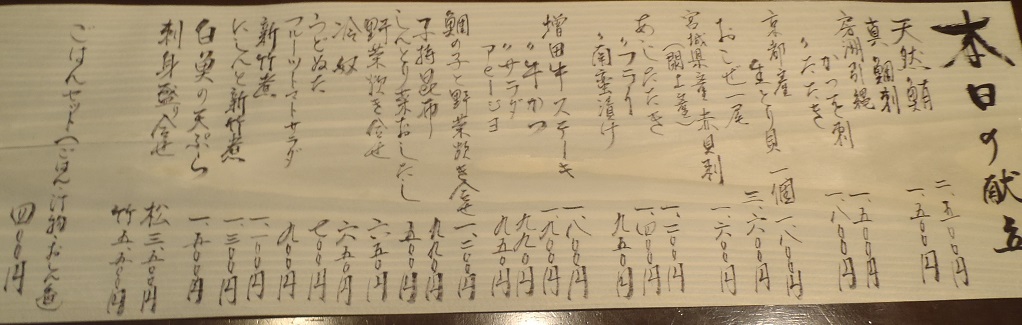 本日の献立
天然鮪 二、五〇〇円
真鯛刺 一、五〇〇円
房州引縄
かつを刺 一、五〇〇円
〃たたき 一、八〇〇円
京都産
生とり貝 一個 一、八〇〇円
おこぜ一尾 三、六〇〇円
宮城県産赤貝刺 一、六〇〇円
(閖上産)
あじたたき 一、二〇〇円
〃フライ 一、四〇〇円
〃南蛮漬け 九五〇円
増田牛ステーキ 一、八〇〇円
〃牛かつ 一、九〇〇円
〃サラダ 九九〇円
アヒージョ 九五〇円
鯛の子と野菜炊き合せ 一、二〇〇円
子持昆布 九九〇円
しんとり菜おしたし 五五〇円
野菜炊き合せ 六五〇円
冷奴 六五〇円
うどぬた 七〇〇円
フルーツトマトサラダ 九〇〇円
新竹煮 一、一〇〇円
にしんと新竹煮 一、三〇〇円
白魚の天ぷら 一、五〇〇円
刺身盛り合せ 松 三、五〇〇円
竹
ごはんセット(ごはん、汁物、おしんこ) 四〇〇円